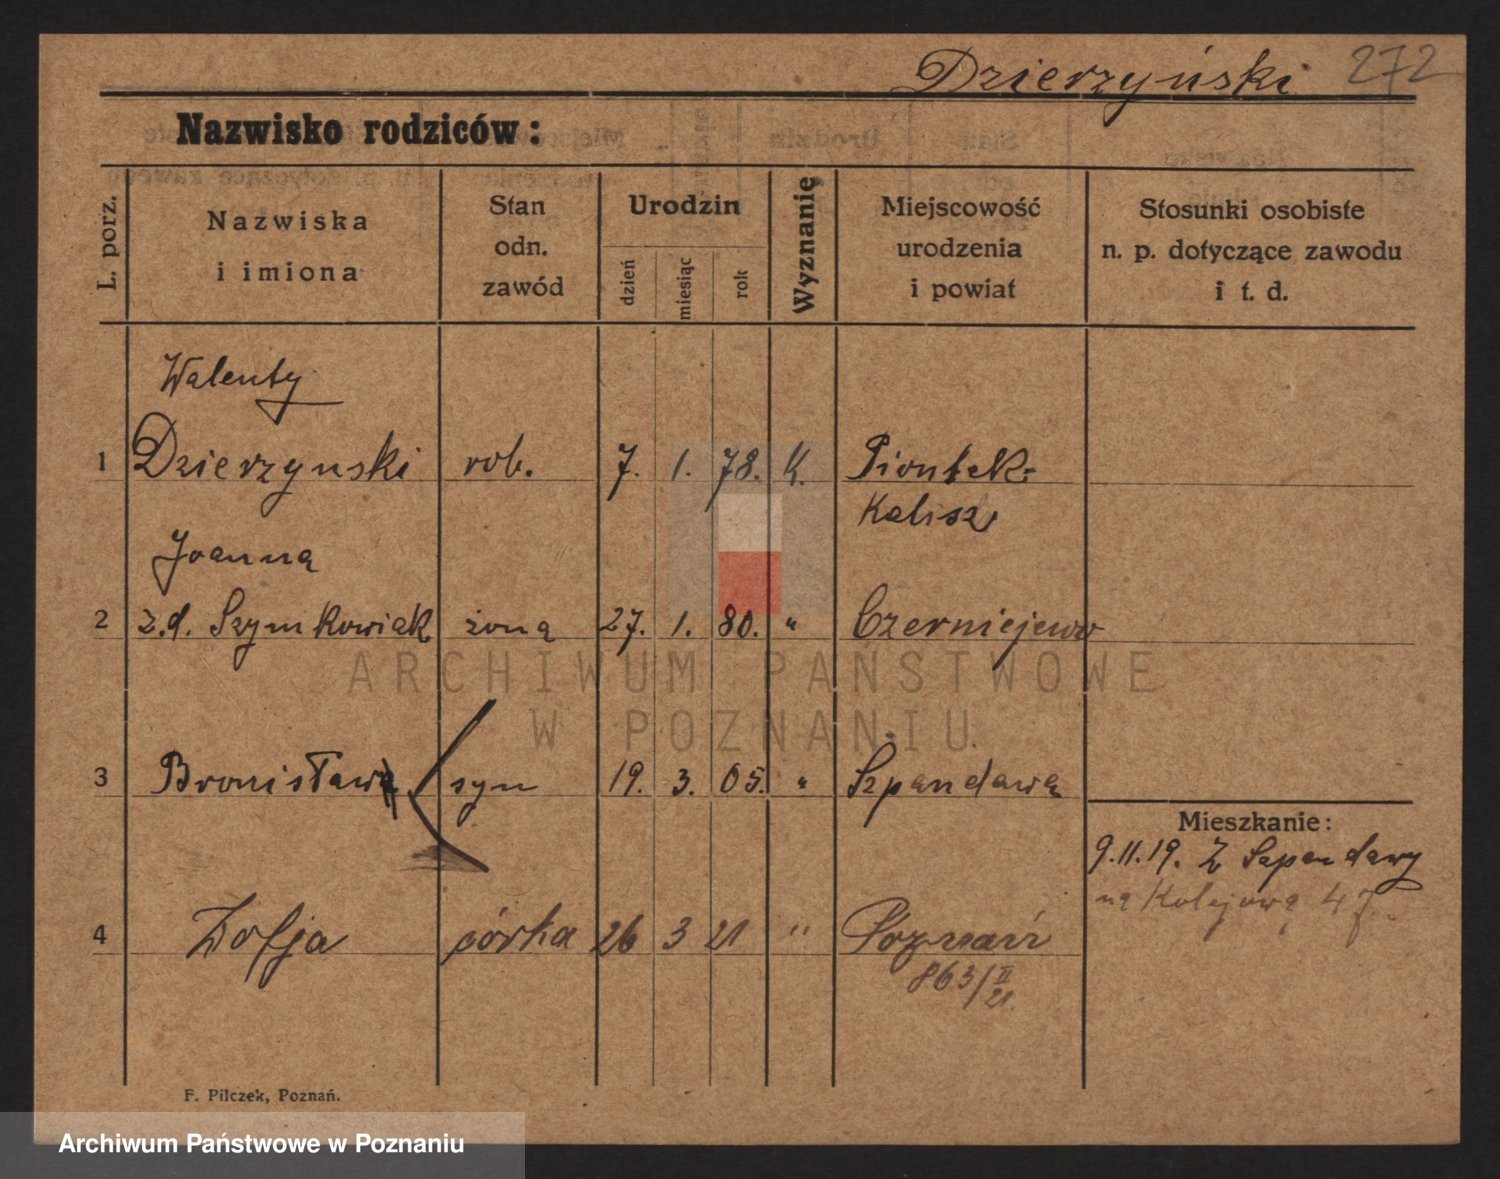 Dzierzyński 272
Nazwisko rodziców:
L. porz.
Nazwiska
i imiona
Stan
odn.
zawód
Urodzin
dzień
miesiąc
rok
Wyznanie
Miejscowość
urodzenia
i powiat
Stosunki osobiste
n. p. dotyczące zawodu
i t. d.
Walenty
1 Dzierzynski rob. 7. 1. 78. K. Piontek-
Kalisz
Joanna
2 z.d. Szymkowiak żona 27. 1. 80. " Czerniejewo
3 Bronisław syn 19. 3. 05. " Szpandawa
Mieszkanie:
9.11.19. Z Szpandawy
na Kolejową 47.
4 Zofja córka 26 3 21 " Poznań
863/II
21.
F. Pilczek, Poznań.
ARCHIWUM PAŃSTWOWE
W POZNANIU
Archiwum Państwowe w Poznaniu